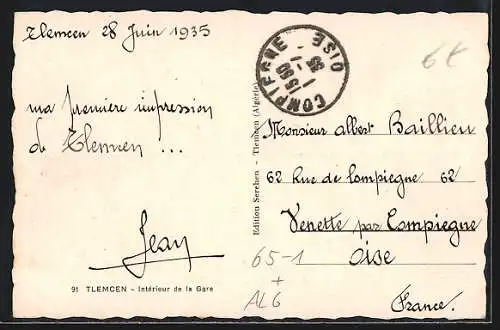 Tlemcen 28 Juin 1935
ma première impression
de Tlemcen ...
Jean
91 TLEMCEN - Intérieur de la Gare
Edition Serehen - Tlemcen (Algérie)
COMPIEGNE OISE
6t
Monsieur Albert Baillieu
62 Rue de Compiegne 62
Venette par Compiegne
Oise
France.
65-1
+
AL6